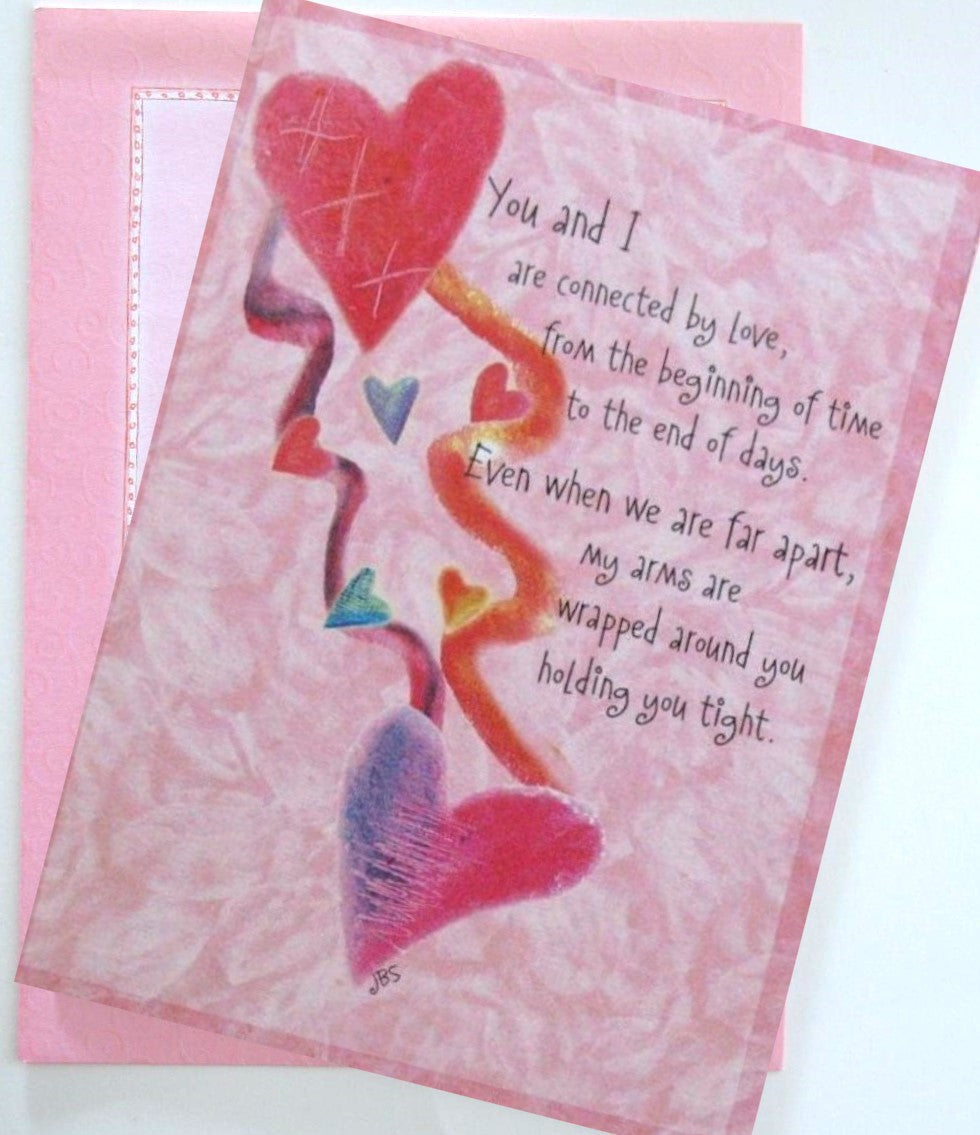 You and I
are connected by love,
from the beginning of time
to the end of days.
Even when we are far apart,
my arms are
wrapped around you
holding you tight.
JBS